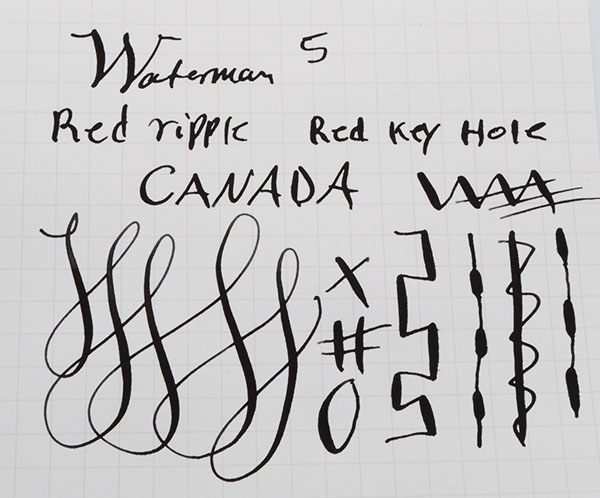 Waterman 5
Red ripple Red Key Hole
CANADA
X
#
O